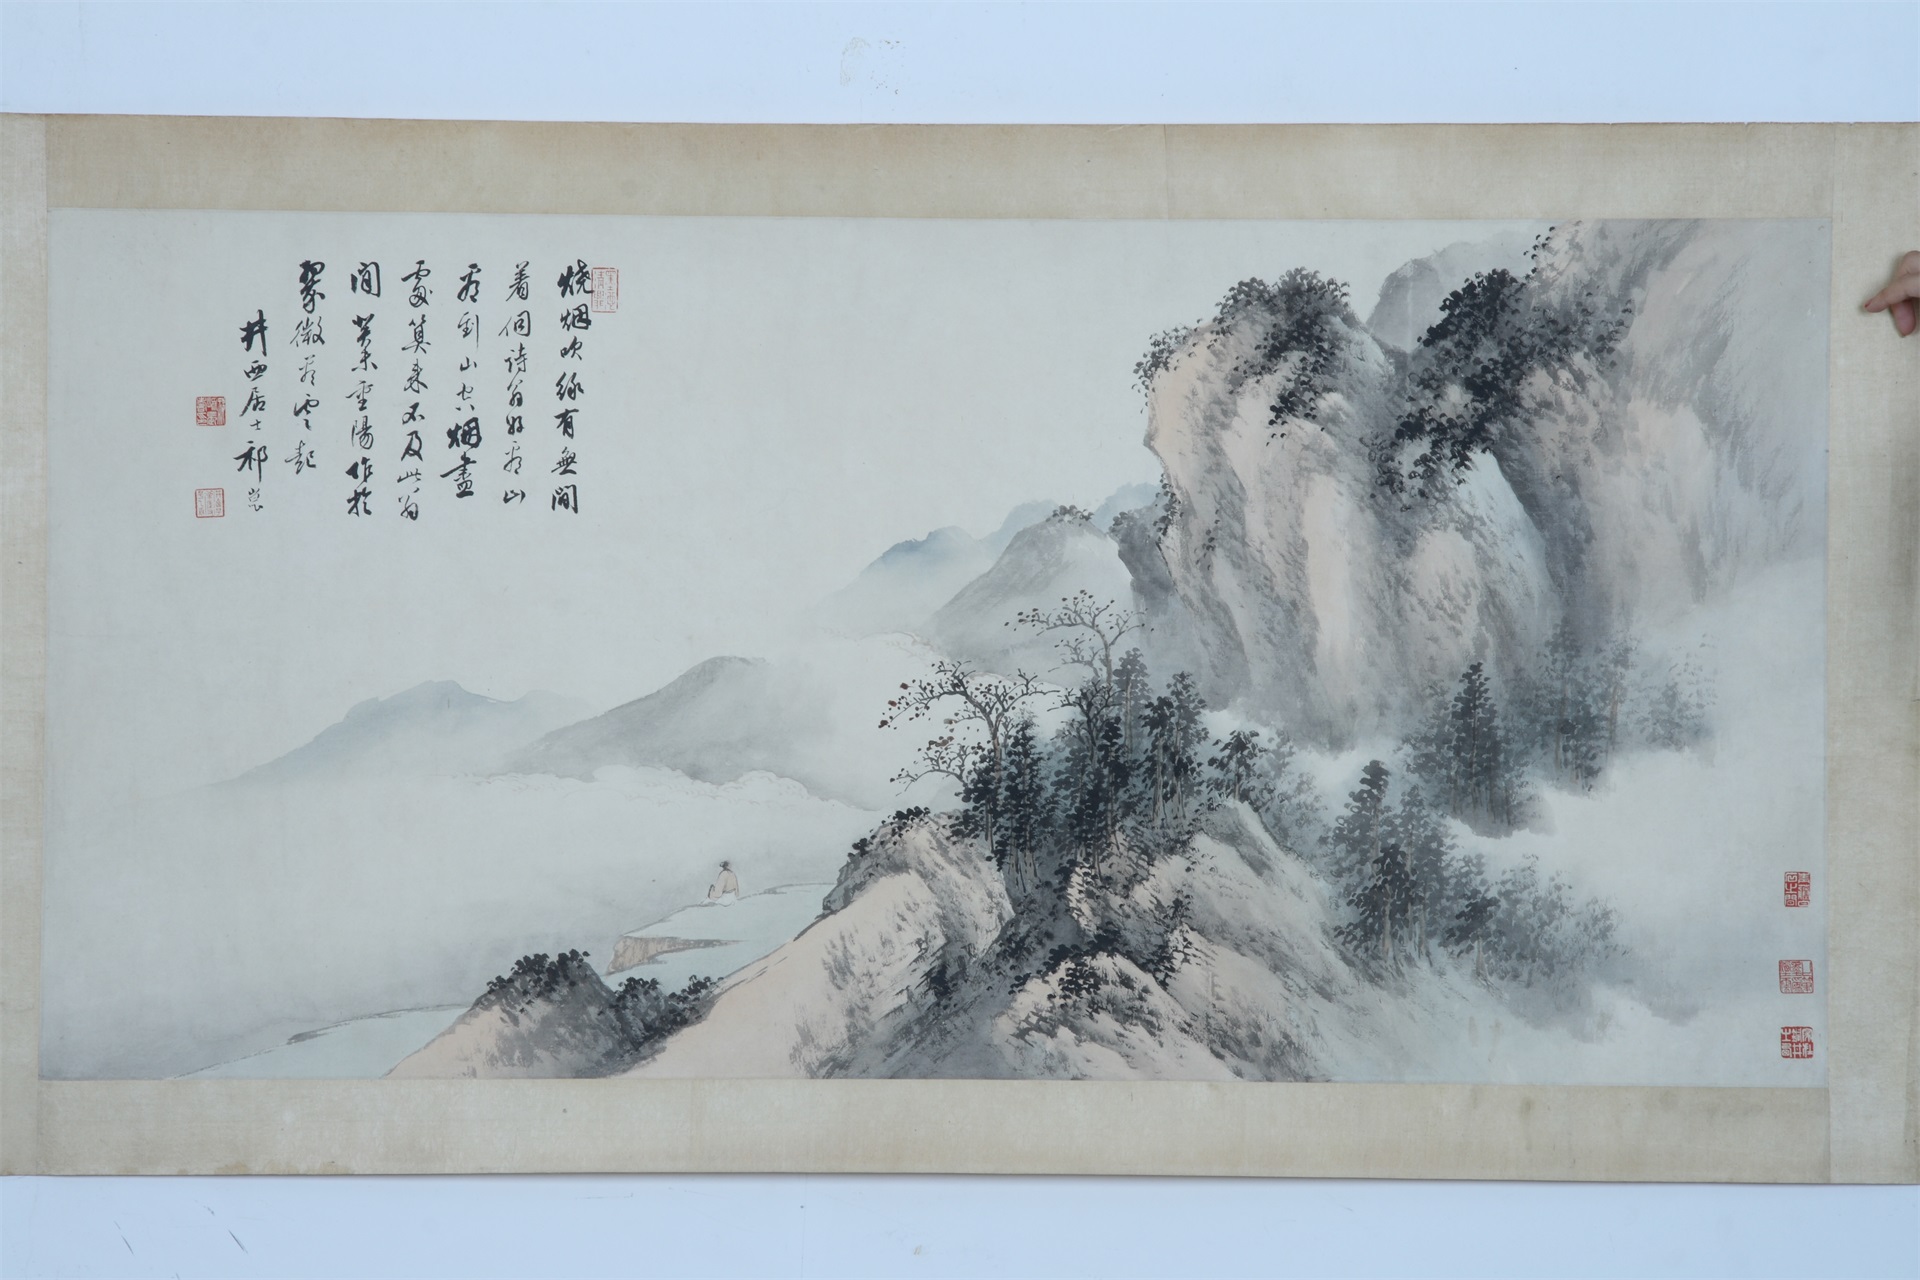 烧烟吹缘有無間
着個诗翁好看山
看到山容烟盡
處算来不及此翁
閒 癸未重陽作於
翠微看雲起
井西居士祁崑